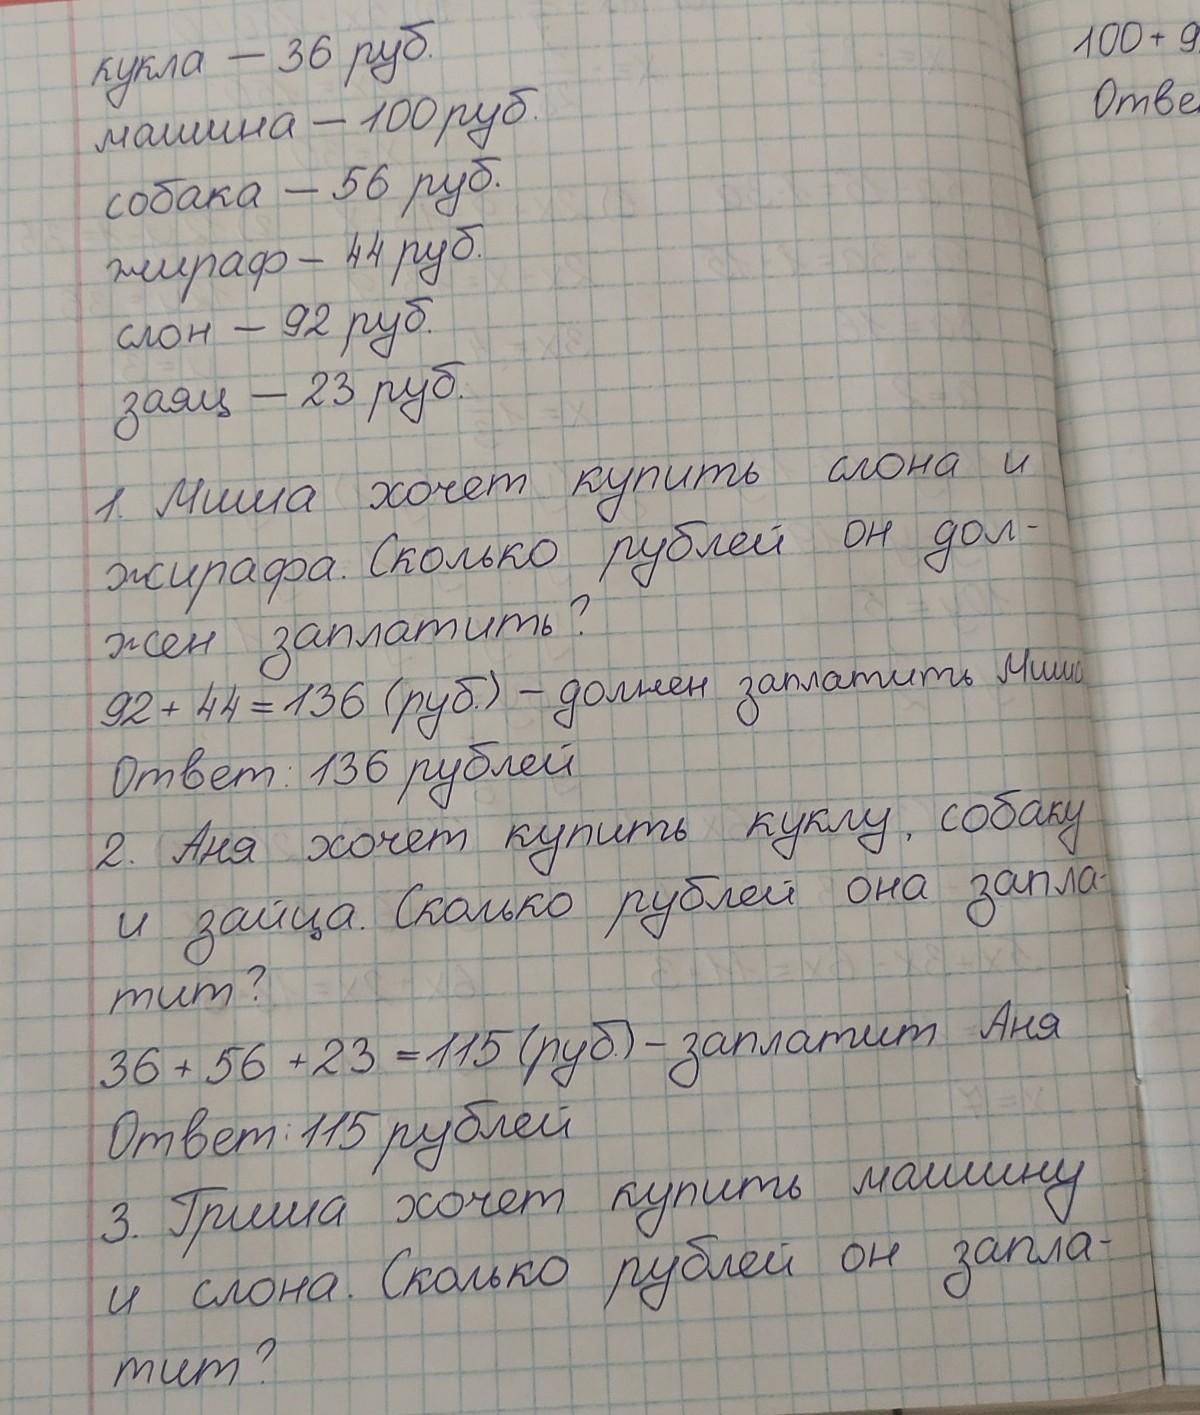 кукла – 36 руб.
машина – 100 руб.
собака – 56 руб.
жираф – 44 руб.
слон – 92 руб.
заяц – 23 руб.
1. Миша хочет купить слона и
жирафа. Сколько рублей он дол-
жен заплатить?
92 + 44 = 136 (руб.) – должен заплатить Миша
Ответ: 136 рублей
2. Аня хочет купить куклу, собаку
и зайца. Сколько рублей она запла-
тит?
36 + 56 + 23 = 115 (руб.) – заплатит Аня
Ответ: 115 рублей
3. Гриша хочет купить машину
и слона. Сколько рублей он запла-
тит?
100 + 9
Отве